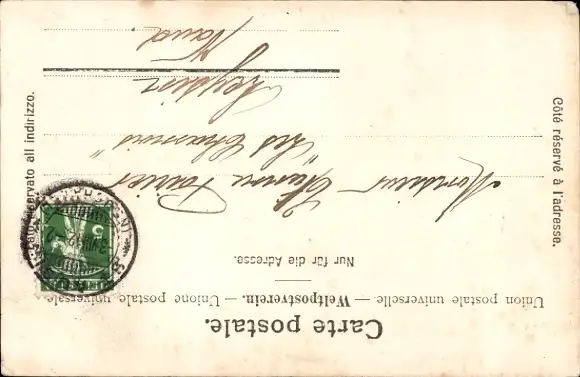 Carte postale.
Union postale universelle. — Weltpostverein. — Unione postale universale.
Nur für die Adresse.
Côté réservé à l'adresse.
Lato riservato all indirizzo.
Monsieur
"Les Chamois"
Leysin
Vaud.
5